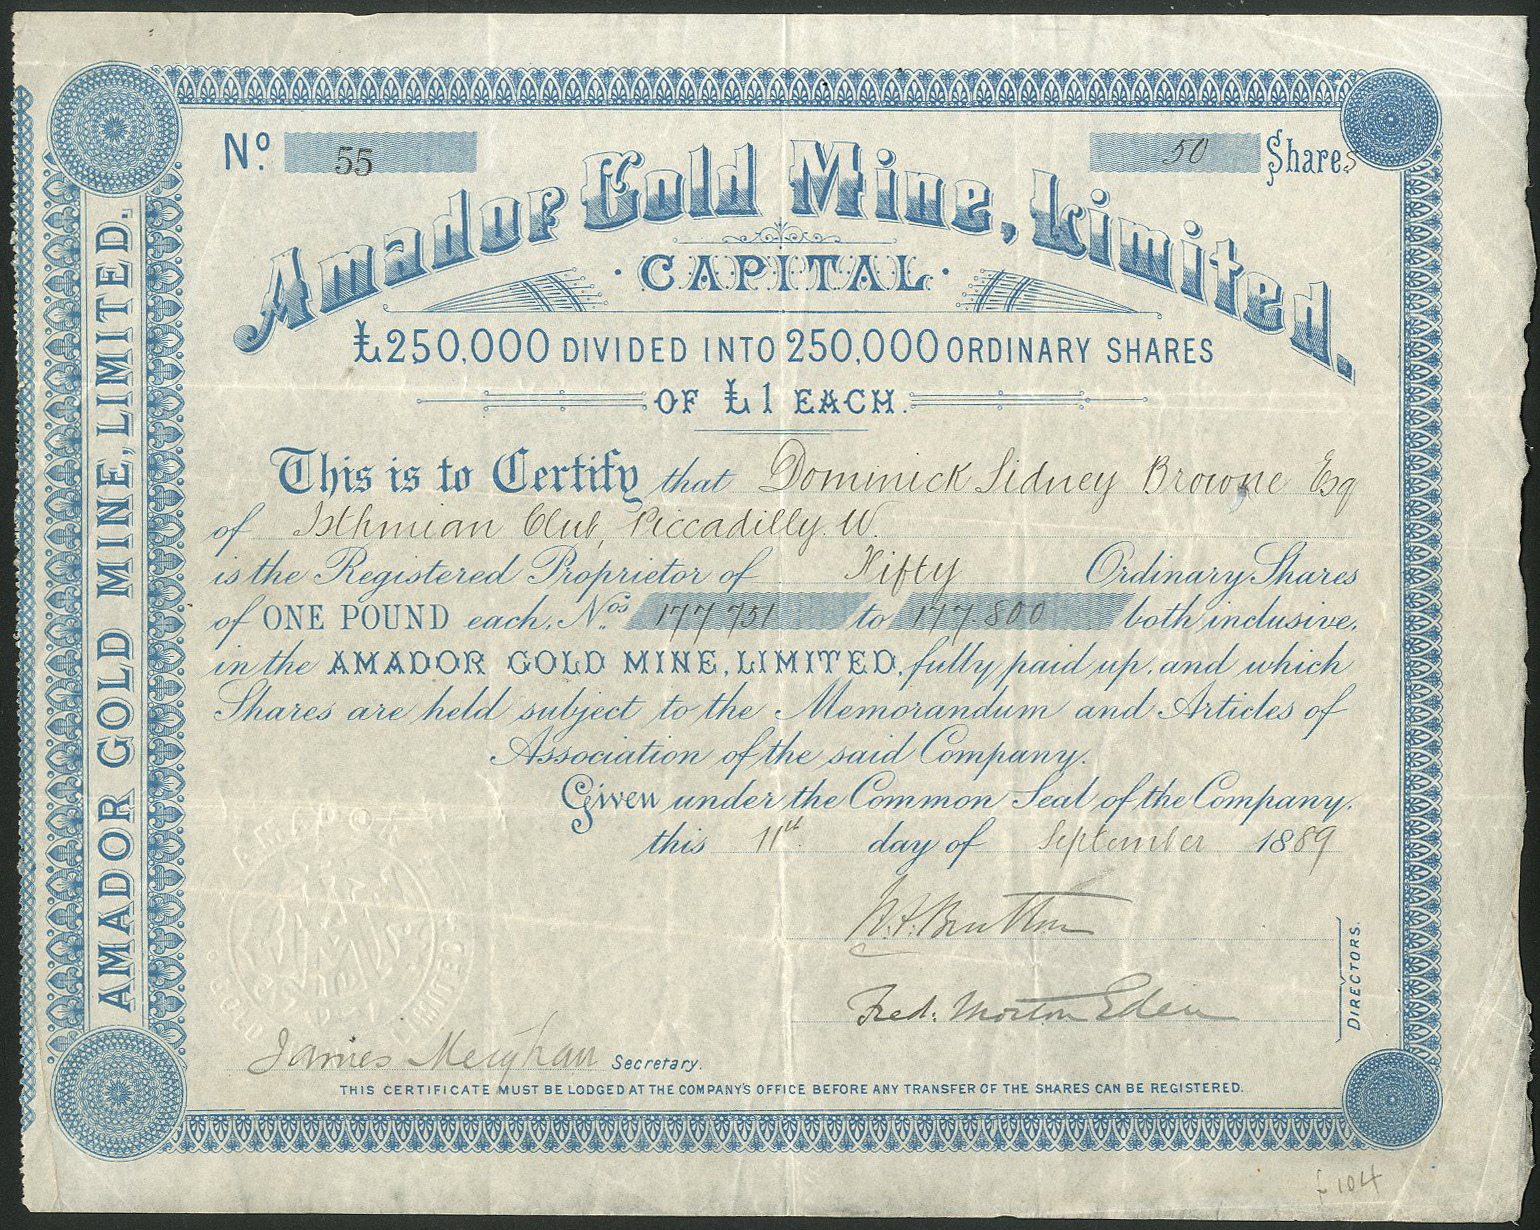 AMADOR GOLD MINE, LIMITED.
No. 55
50 Shares
Amador Gold Mine, Limited.
CAPITAL
£250,000 DIVIDED INTO 250,000 ORDINARY SHARES
OF £1 EACH.
This is to Certify that Dominick Sidney Browne Esq
of Isthmian Club, Piccadilly. W.
is the Registered Proprietor of Fifty Ordinary Shares
of ONE POUND each, Nos. 177751 to 177.800 both inclusive,
in the AMADOR GOLD MINE, LIMITED, fully paid up, and which
Shares are held subject to the Memorandum and Articles of
Association of the said Company.
Given under the Common Seal of the Company,
this 11th day of September 1889
Fred. Morton Eden
DIRECTORS.
AMADOR GOLD LIMITED
James Meighan Secretary.
THIS CERTIFICATE MUST BE LODGED AT THE COMPANY'S OFFICE BEFORE ANY TRANSFER OF THE SHARES CAN BE REGISTERED.
£104